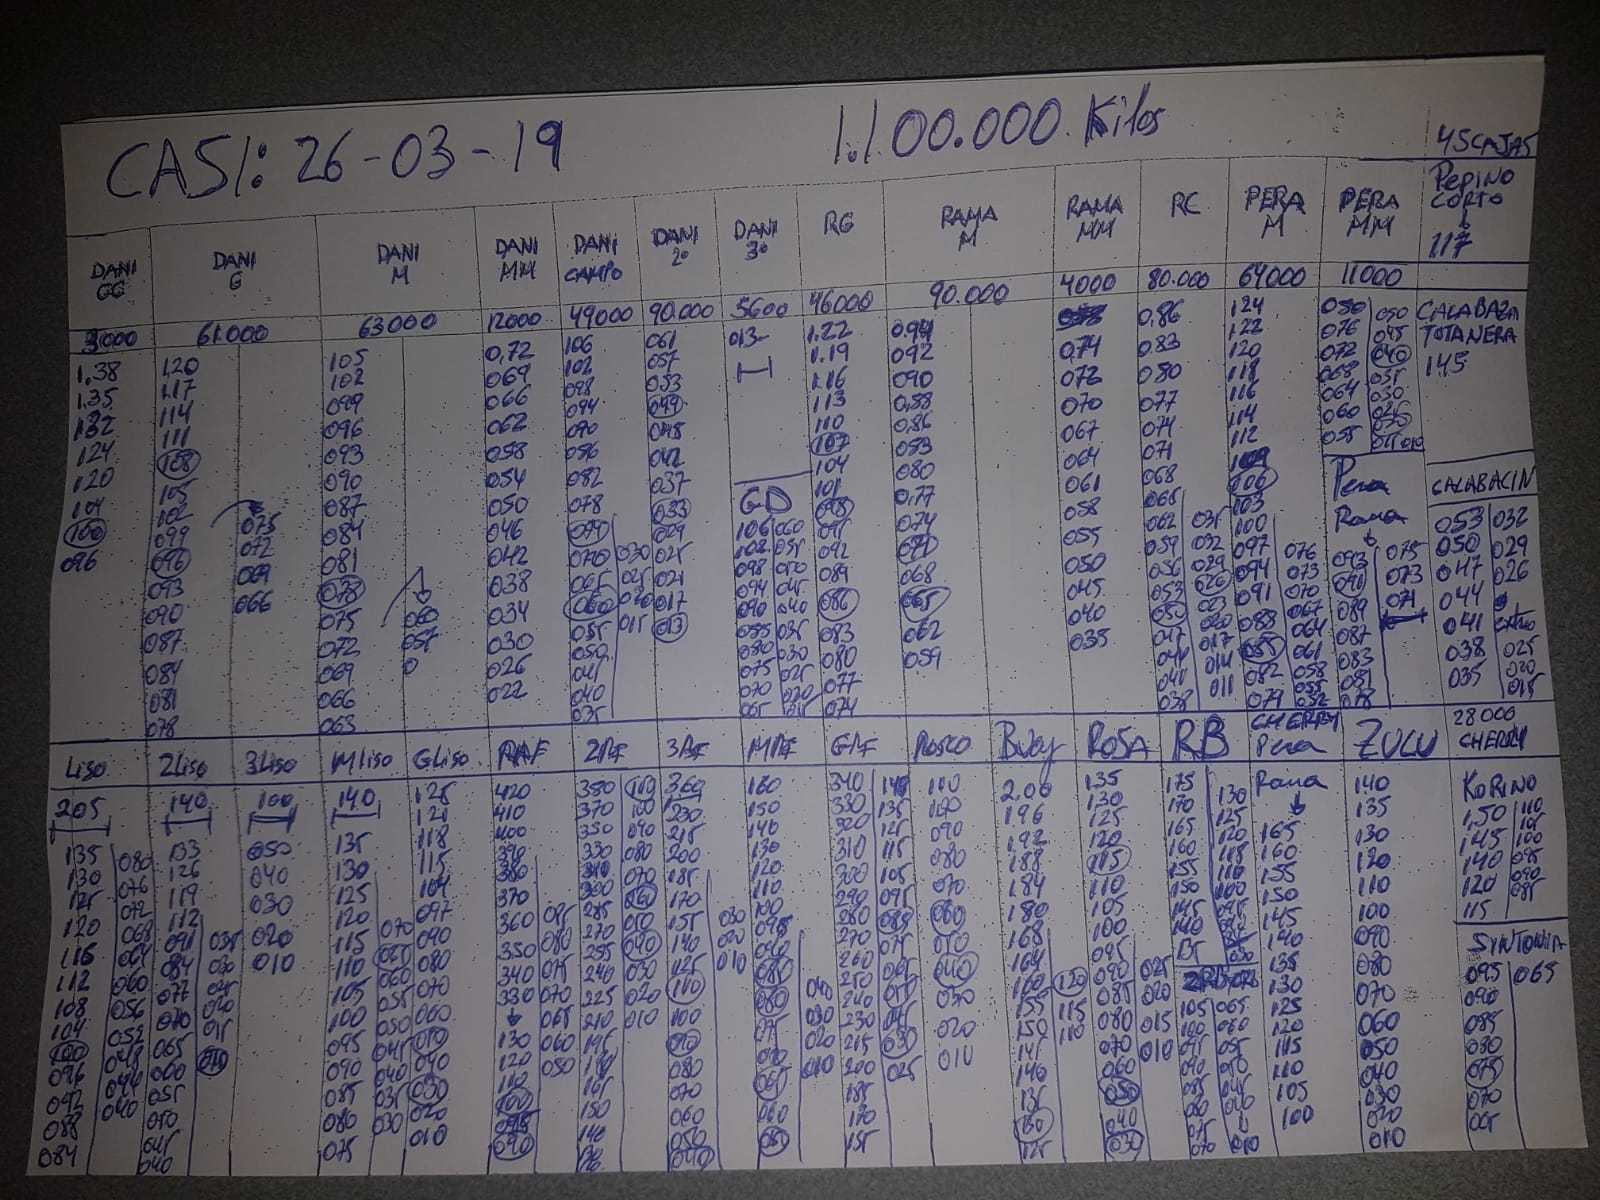 CASI: 26-03-19 1.100.000 Kilos
45 CAJAS
PEPINO CORTO
117
DANI GG DANI G DANI M DANI MM DANI CAMPO DANI 2º DANI 3º RG RAMA M RAMA MM RC PERA M PERA MM
61.000 63000 12000 49000 90.000 5600 46000 90.000 4000 80.000 64000 11000
1.38
1.35
132
124
120
104
100
096
120
117
114
111
108
105
102
099
096
093
090
087
084
081
078
075
072
069
066
105
102
099
096
093
090
087
084
081
078
075
072
069
066
063
060
057
0
0,72
069
066
062
058
054
050
046
042
038
034
030
026
022
106
102
098
094
090
086
082
078
074
070 030
065 025
060 020
055 015
050
045
040
035
061
057
053
049
045
042
037
033
029
025
021
017
013
013-
GD
106 060
102 055
098 050
094 045
090 040
085 035
080 030
075 025
070 020
065 015
1.22
1.19
1.16
113
110
107
104
101
098
095
092
089
086
083
080
077
074
0,94
092
090
0,88
0,86
083
080
0,77
0,74
071
068
065
062
059
0,74
072
070
067
064
061
058
055
050
045
040
035
0,86
0.83
080
077
074
071
068
065
062 035
059 032
056 029
053 026
050 023
047 020
044 017
041 014
038 011
124
122
120
118
116
114
112
109
106
103
100
097 076
094 073
091 070
088 067
085 064
082 061
079 058
080 050
076 045
072 040
068 035
064 030
060 025
055
Pera
Rama
093 075
090 073
089 071
087
083
081
078
CALABAZA
TOTANERA
145
CALABACIN
053 032
050 029
047 026
044
041 extra
038 025
035 020
015
LISO 2LISO 3LISO MLISO GLISO RAF 2RF 3RF MRF GRF ROSCO Buey ROSA RB CHERRY Pera Rama ZULU 28000 CHERRY
205
135 080
130 076
125 072
120 068
116 064
112 060
108 056
104 052
100 048
096 044
092 040
088
084
140
133
126
119
112
091 035
084 030
077 025
070 020
065 015
060 010
055
050
045
040
100
050
040
030
020
010
140
135
130
125
120
115 070
110 065
105 060
100 055
095 050
090 045
085 040
080 035
075 030
125
121
118
115
104
097
090
080
070
060
050
040
030
020
010
420
410
400
390
380
370
360 085
350 080
340 075
330 070
065
130 060
120 050
110
100
095
090
380 110
370 100
350 090
330 080
310 070
300 060
285 050
270 040
255 030
240 020
225 010
210
195
180
165
150
140
360
230
215
200
185
170
155 030
140 020
125 010
110
100
090
080
070
060
050
040
160
150
140
130
120
110
100
095
090
085
080
075
070
065
060
050
040
030
020
010
340 145
330 135
320 125
310 115
300 105
290 095
280 085
270 075
260 065
250 055
240 045
230 030
215 025
200
185
170
155
110
100
090
080
070
060
050
040
030
020
010
2.00
196
192
188
184
180
168
164
160 120
155 115
150 110
145
140
135
130
125
135
130
125
120
115
110
105
100
095
090 025
085 020
080 015
070 010
060
050
040
030
175 130
170 125
165 120
160 115
155 110
150 100
145
140
135
105 065
100 060
095 055
090 050
085 045
080 040
075
070 010
165
160
155
150
145
140
135
130
125
120
115
110
105
100
140
135
130
120
110
100
090
080
070
060
050
040
030
020
010
KORINO
1,50 110
145 105
140 100
120 095
115 090
085
SINTONIA
095 065
090
085
080
075
070
065